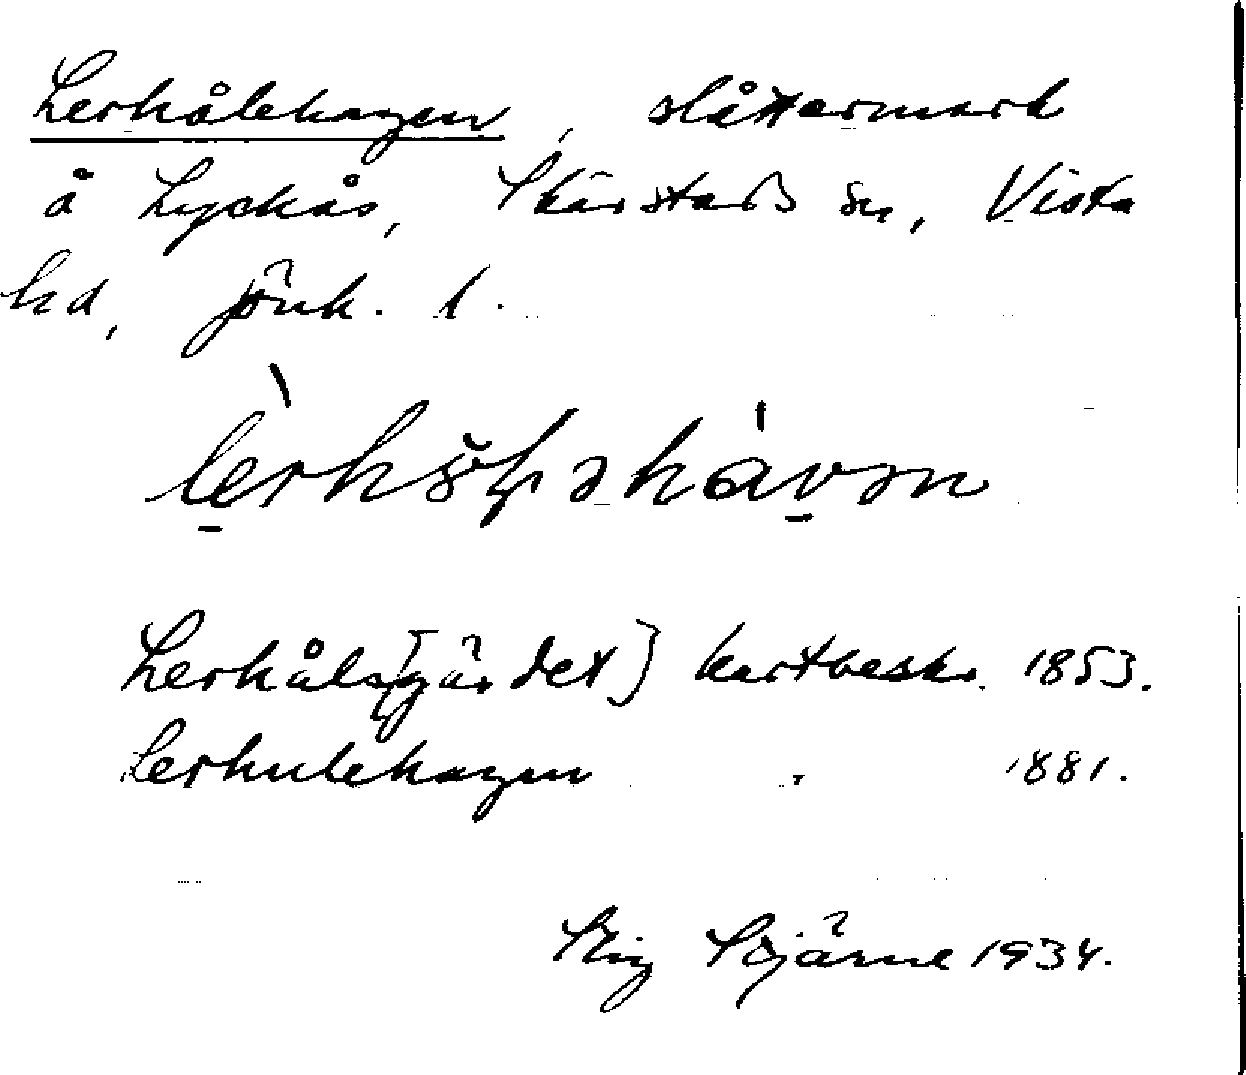 Lerhålehagen, slåttermark
å Lyckås, Skärstads sn, Vista
hd, Jönk. l.
Lerhåls[gärdet] kartbeskr. 1853.
Lerhulehagen " 1881.
Stig Stjärne 1934.